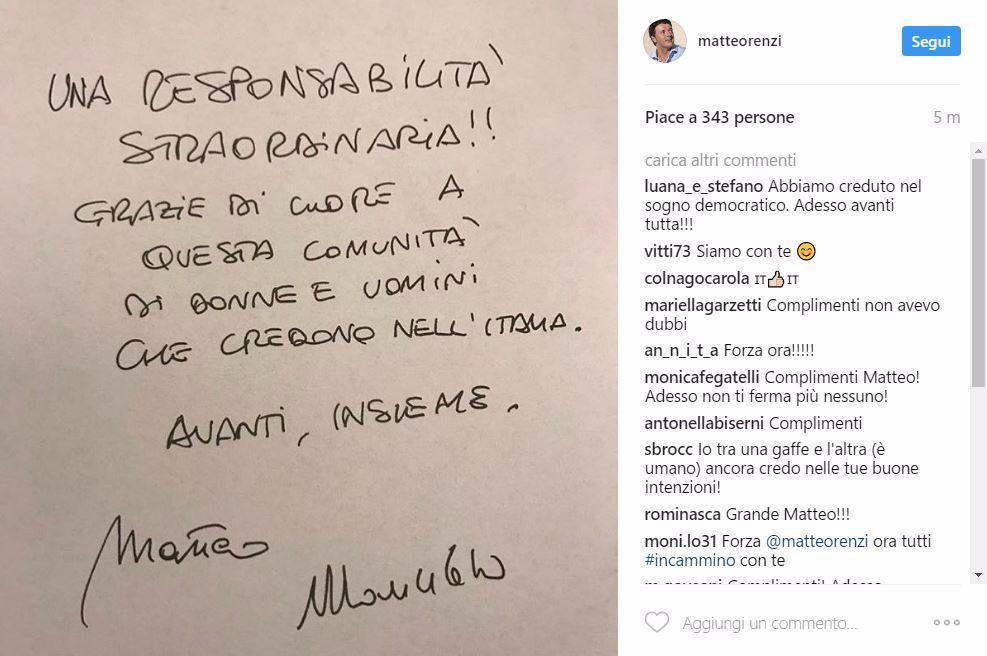 UNA RESPONSABILITÀ
STRAORDINARIA!!
GRAZIE DI CUORE A
QUESTA COMUNITÀ
DI DONNE E UOMINI
CHE CREDONO NELL'ITALIA.
AVANTI, INSIEME.
Matteo
matteorenzi
Segui
Piace a 343 persone
5 m
carica altri commenti
luana_e_stefano Abbiamo creduto nel
sogno democratico. Adesso avanti
tutta!!!
vitti73 Siamo con te 😊
colnagocarola IT👍IT
mariellagarzetti Complimenti non avevo
dubbi
an_n_i_t_a Forza ora!!!!!
monicafegatelli Complimenti Matteo!
Adesso non ti ferma più nessuno!
antonellabiserni Complimenti
sbrocc Io tra una gaffe e l'altra (è
umano) ancora credo nelle tue buone
intenzioni!
rominasca Grande Matteo!!!
moni.lo31 Forza @matteorenzi ora tutti
#incammino con te
Complimenti! Adesso
Aggiungi un commento...